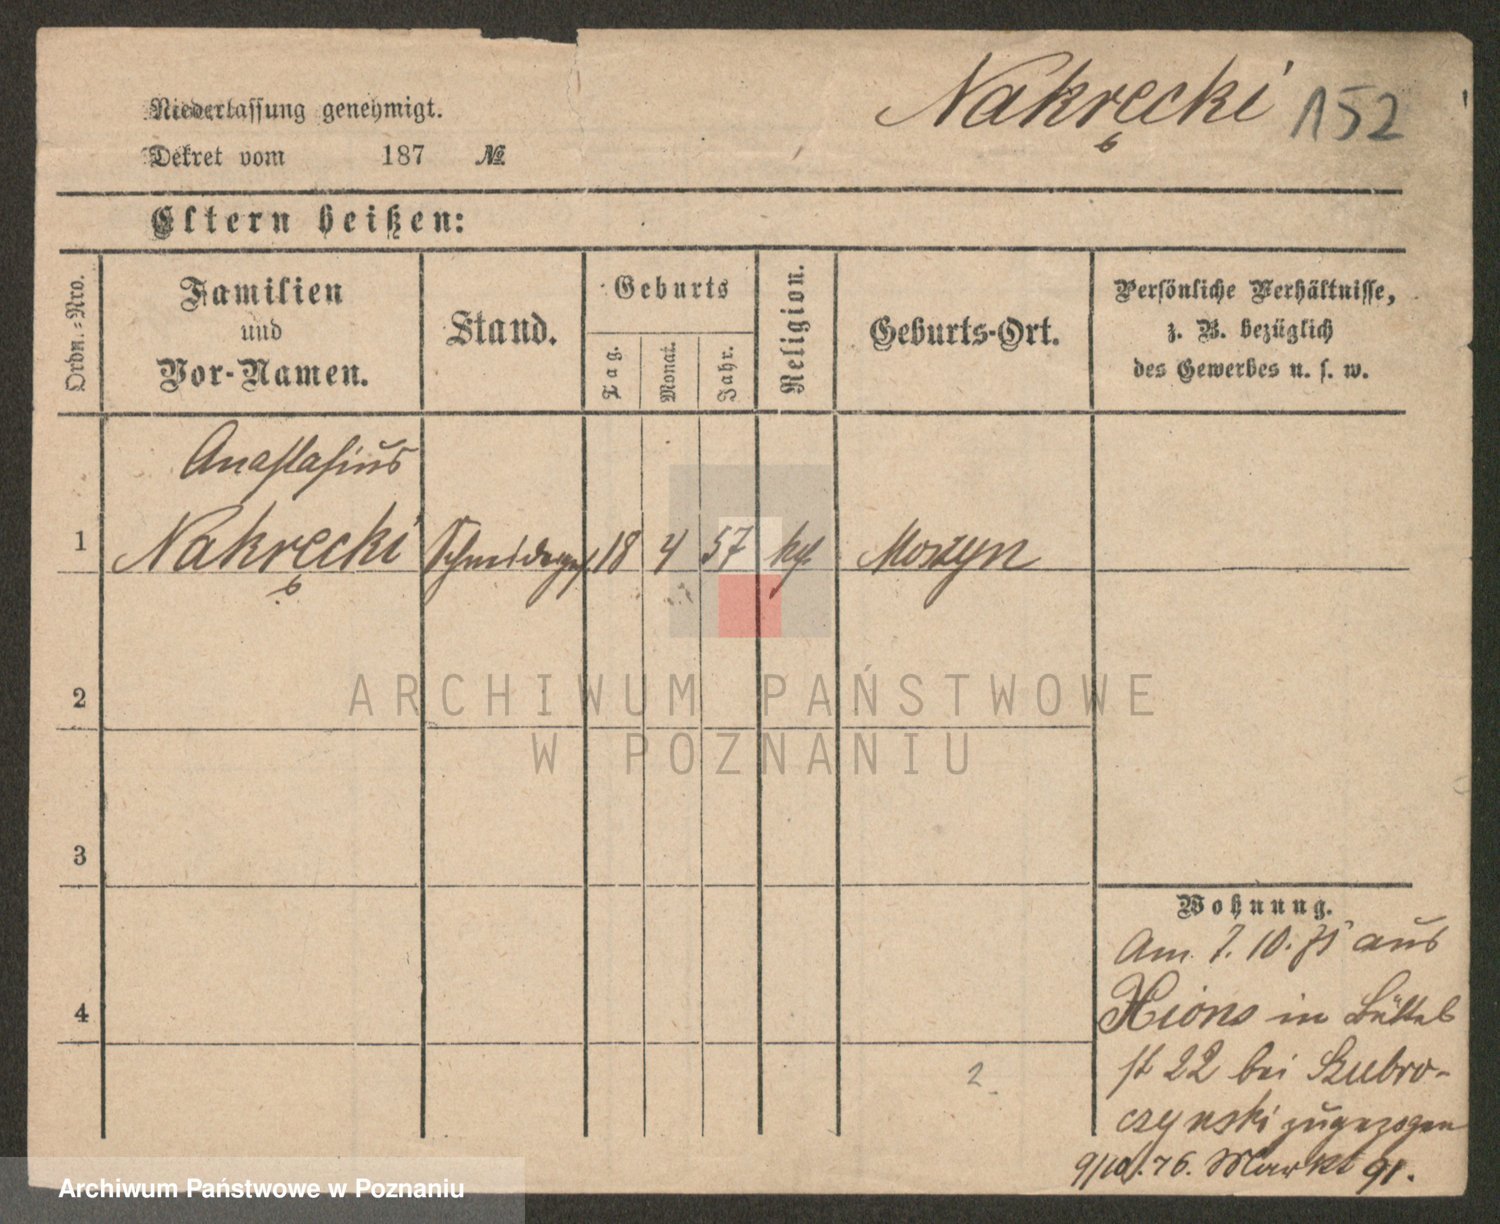 Nakrecki 152
6
Niederlassung genehmigt.
Dekret vom 187 №
Eltern heißen:
Ordn.=Nro.
Familien
und
Vor-Namen.
Stand.
Geburts
Tag.
Monat.
Jahr.
Religion.
Geburts-Ort.
Persönliche Verhältnisse,
z. B. bezüglich
des Gewerbes u. s. w.
Anastasius
1 Nakrecki Schneiderges. 18 4 57 kg. Moszyn
6
2
3
4
Wohnung.
Am 7. 10. 75 aus
Xions in Büttel
st 22 bei Szubro-
czynski zugezogen
9/10. 76. Markt 91.
2
ARCHIWUM PAŃSTWOWE
W POZNANIU
Archiwum Państwowe w Poznaniu